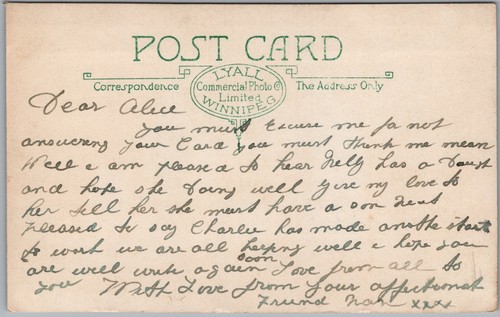 POST CARD
LYALL
Commercial Photo Co
Limited
WINNIPEG
Correspondence
The Address Only
Dear Alice
you must Excuse me for not
answering your Card you must think me mean
Well i am pleased to hear Nelly has a
and hope she Doing well give my love to
her tell her she must have a son next
pleased to say Charlie has made another start
to work we are all keeping well i hope you
are well write again soon Love from all to
you With Love from your affectionat
Friend Nan xxxx